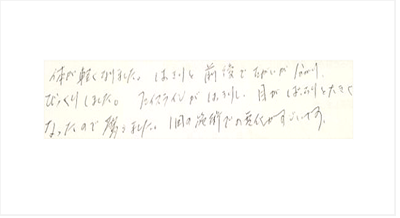 体が軽くなりました。はっきりと前後でちがいが分かり、
びっくりしました。フェイスラインがはっきりし、目がぱっちりと大きく
なったので驚きました。1回の施術での変化がすごいです。